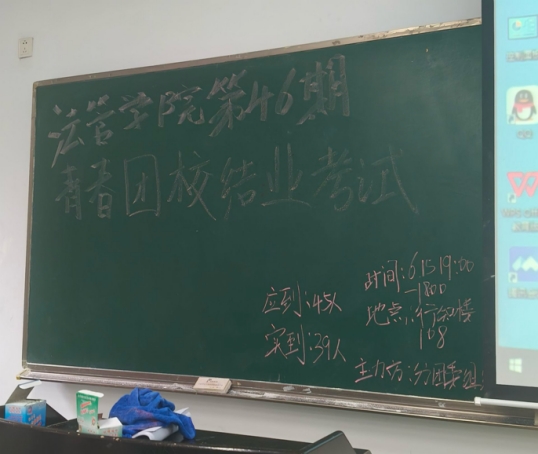 法管学院第46期
青春团校结业考试
应到:45人
实到:39人
时间:6.15 19:00
-1800
地点:行知楼
108
主力方:分团委组